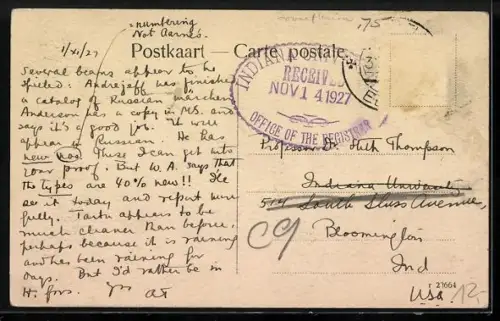 numbering
Not Aarne's
.75
1/XI/27
Postkaart - Carte postale
Several beans appear to be
spilled: Andrejeff has finished
a catalog of Russian märchen
Anderson has a copy in MS. and
says it's a good job. It will
appear in Russian. He has
new nos. These I can get into
your proof. But W. A. says that
the types are 40% new!! I'll
see it today and report more
fully. Tartu appears to be
much cleaner than before,
perhaps because it is raining
and has been raining for
days. But I'd rather be in
H. fors. Yrs AT
INDIANA
RECEIVED
NOV 14 1927
OFFICE OF THE REGISTRAR
Professor Dr. Stith Thompson
Indiana University
514 South Avenue,
Bloomington
Ind
USA
21664
12.-